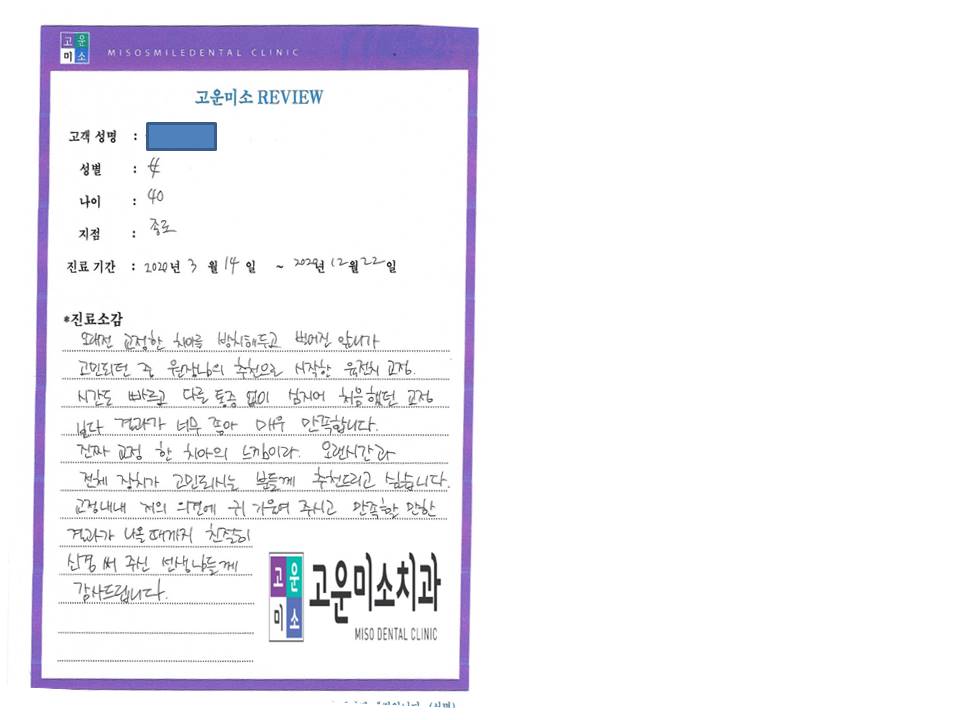 고운
미소
MISOSMILEDENTAL CLINIC
고운미소 REVIEW
고객 성명 :
성별 : 女
나이 : 40
지점 : 종로
진료 기간 : 2020년 3월 14일 ~ 2020년 12월 22일
*진료소감
오래전 교정한 치아를 방치해두고 벌어진 앞니가
고민되던 중 원장님의 추천으로 시작한 육전치 교정.
시간도 빠르고 다른 통증 없이 심지어 처음했던 교정
보다 결과가 너무 좋아 매우 만족합니다.
진짜 교정 한 치아의 느낌이라. 오랜시간과
전체 장치가 고민되시는 분들께 추천드리고 싶습니다.
교정내내 저의 의견에 귀 기울여 주시고 만족할 만한
결과가 나올때까지 친절히
신경 써 주신 선생님들께
감사드립니다.
고운
미소
고운미소치과
MISO DENTAL CLINIC